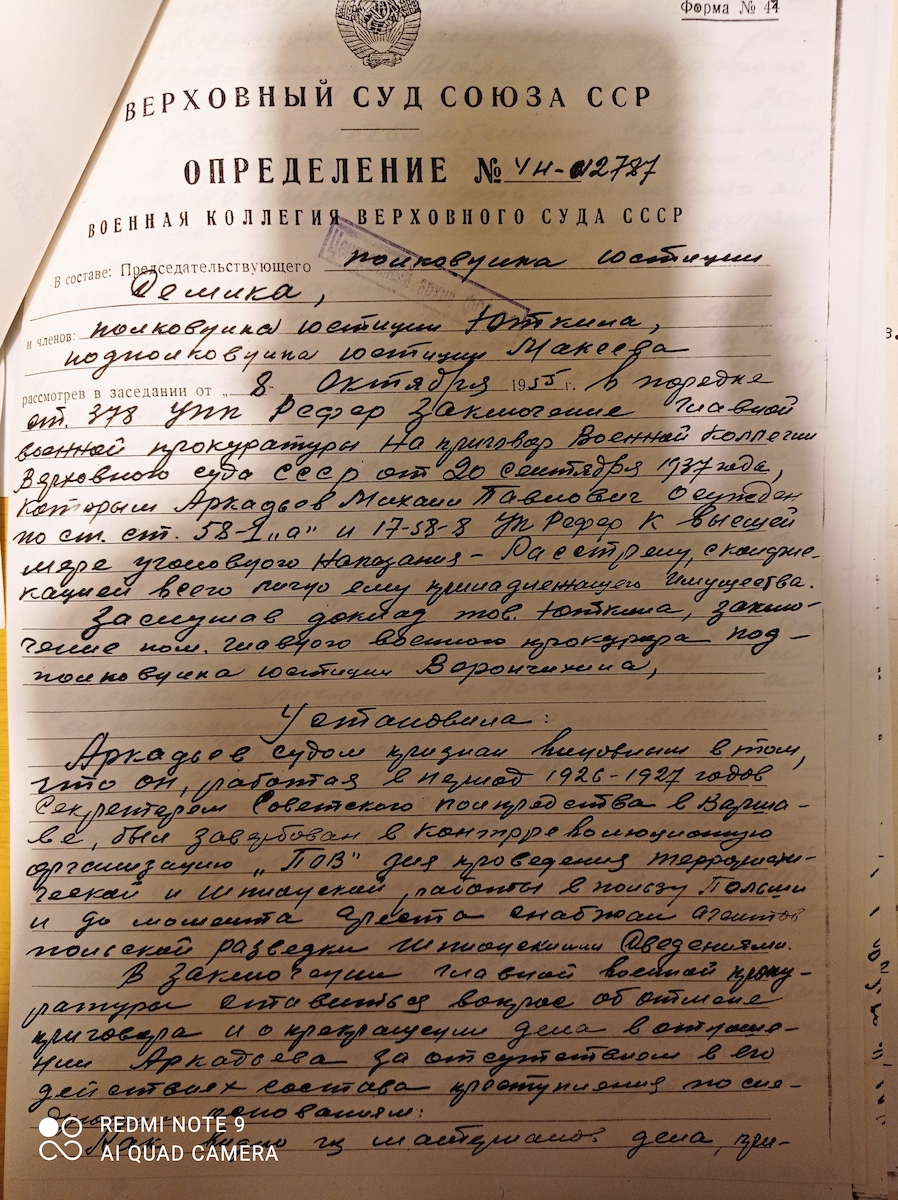 Форма № 44
ВЕРХОВНЫЙ СУД СОЮЗА ССР
ОПРЕДЕЛЕНИЕ № 4н-012787
ВОЕННАЯ КОЛЛЕГИЯ ВЕРХОВНОГО СУДА СССР
В составе: Председательствующего полковника юстиции
Семика,
и членов: полковника юстиции Юткина,
подполковника юстиции Максева
рассмотрев в заседании от „ 8 Октября 1955 г. в порядке
ст. 378 УПК Рсфср Заключение главной
военной прокуратуры на приговор Военной Коллегии
Верховного суда СССР от 20 сентября 1937 года,
которым Аркадьев Михаил Павлович осужден
по ст. ст. 58-1 „а" и 17-58-8 УК Рсфср к высшей
мере уголовного наказания - Расстрелу, с конфис-
кацией всего лично ему принадлежащего имущества.
Заслушав доклад тов. Юткина, заклю-
чение пом. главного военного прокурора под-
полковника юстиции Ворончихина,
Установила:
Аркадьев судом признан виновным в том,
что он, работая в период 1926-1927 годов
Секретарем Советского полпредства в Варша-
ве, был завербован в контрреволюционную
организацию „ПОВ" для проведения террористи-
ческой и шпионской работы в пользу Польши
и до момента ареста снабжал агентов
польской разведки шпионскими сведениями.
В заключении главной военной проку-
ратуры ставиться вопрос об отмене
приговора и о прекращении дела в отноше-
нии Аркадьева за отсутствием в его
действиях состава преступления по сле-
основаниям:
Как видно из материалов дела, при-
REDMI NOTE 9
AI QUAD CAMERA